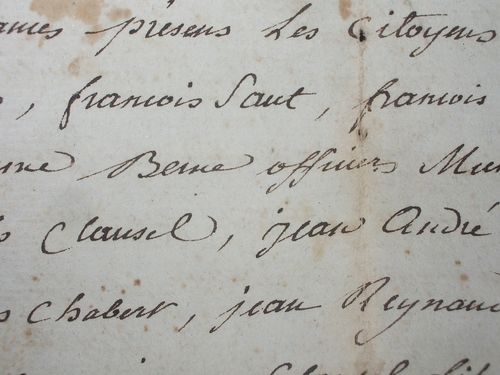 présens Les Citoyens
, francois Saut, francois
Berne officiers Mun
Clausel, jean André
Chabert, jean Reynaud